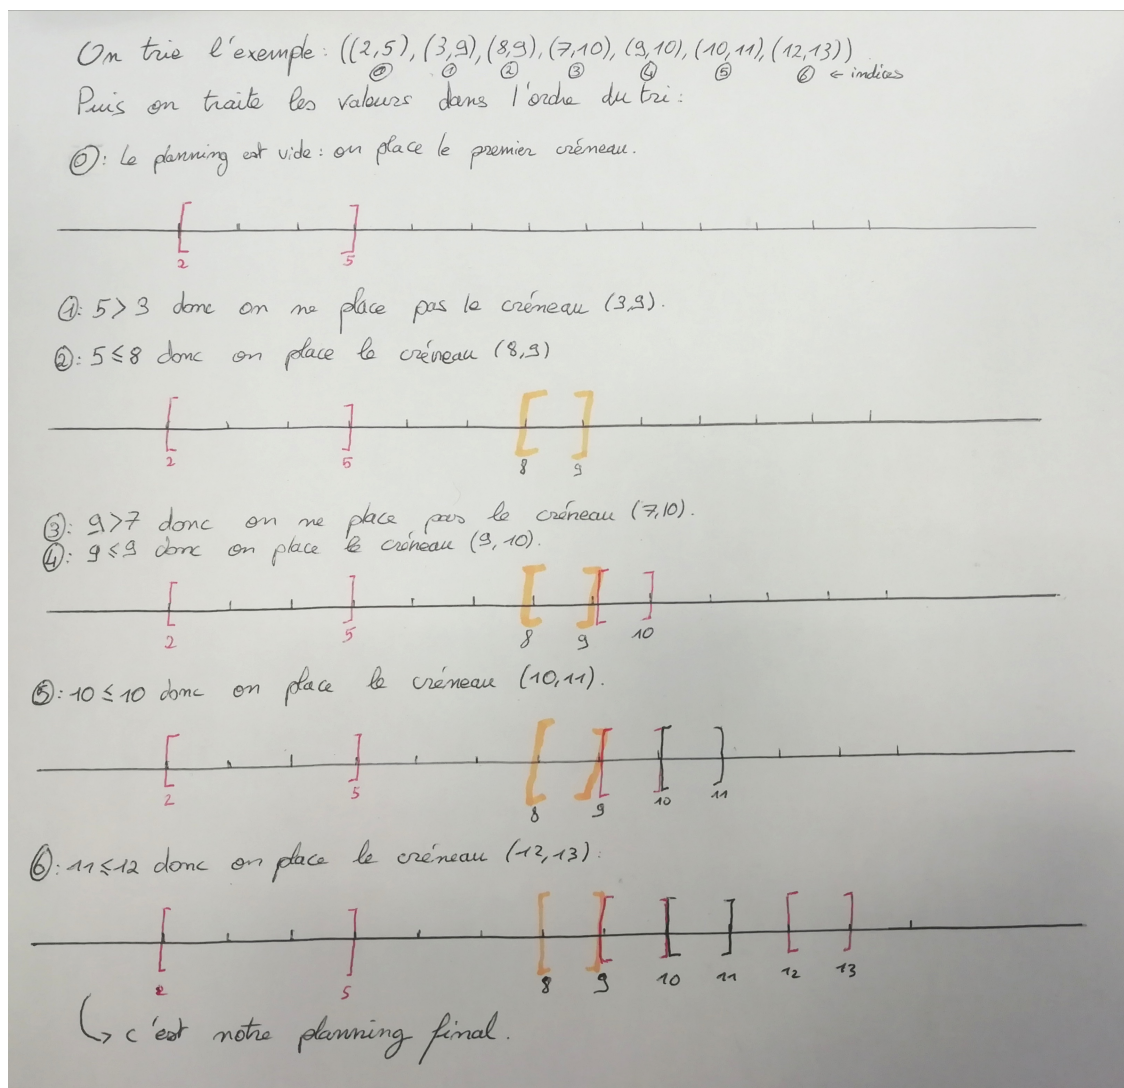 On trie l'exemple : ((2,5), (3,9), (8,9), (7,10), (9,10), (10,11), (12,13))
0 1 2 3 4 5 6 ← indices
Puis on traite les valeurs dans l'ordre du tri :
0 : Le planning est vide : on place le premier créneau.
2 5
1 : 5 > 3 donc on ne place pas le créneau (3,9).
2 : 5 ≤ 8 donc on place le créneau (8,9)
2 5 8 9
3 : 9 > 7 donc on ne place pas le créneau (7,10).
4 : 9 ≤ 9 donc on place le créneau (9,10).
2 5 8 9 10
5 : 10 ≤ 10 donc on place le créneau (10,11).
2 5 8 9 10 11
6 : 11 ≤ 12 donc on place le créneau (12,13).
2 5 8 9 10 11 12 13
↳ c'est notre planning final.